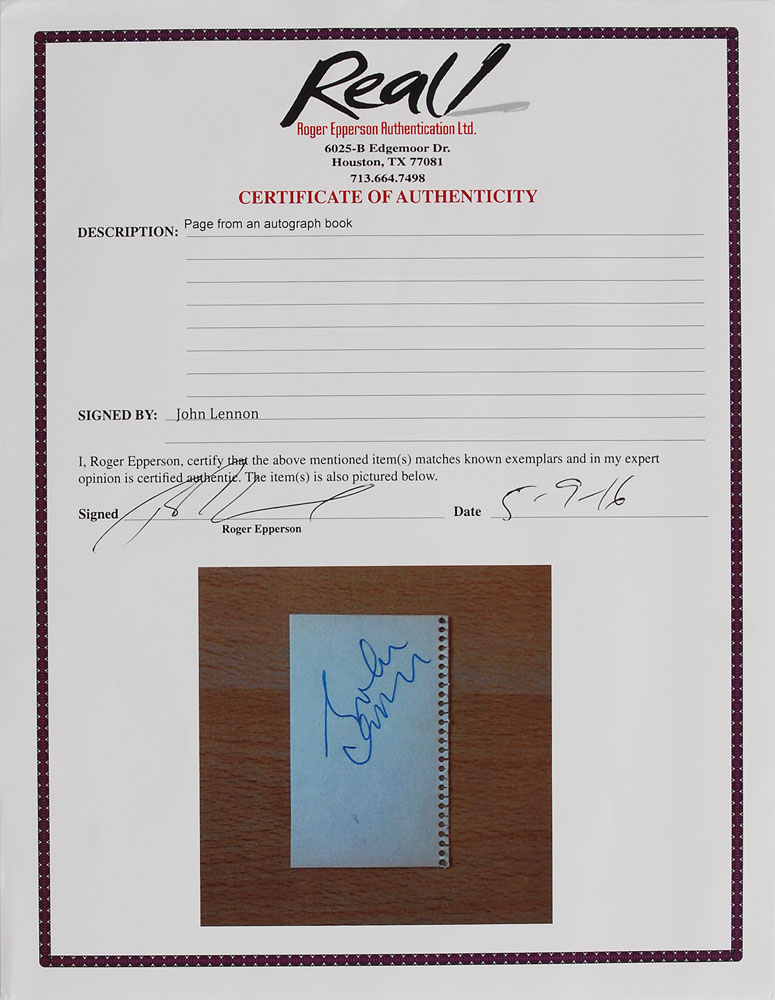 Real!
Roger Epperson Authentication Ltd.
6025-B Edgemoor Dr.
Houston, TX 77081
713.664.7498
CERTIFICATE OF AUTHENTICITY
DESCRIPTION: Page from an autograph book
SIGNED BY: John Lennon
I, Roger Epperson, certify that the above mentioned item(s) matches known exemplars and in my expert
opinion is certified authentic. The item(s) is also pictured below.
Signed Date 5-9-16
Roger Epperson
John
Lennon